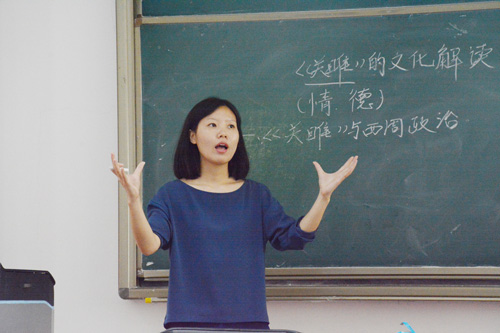 《关雎》的文化解读
(情 德)
一、《关雎》与西周政治